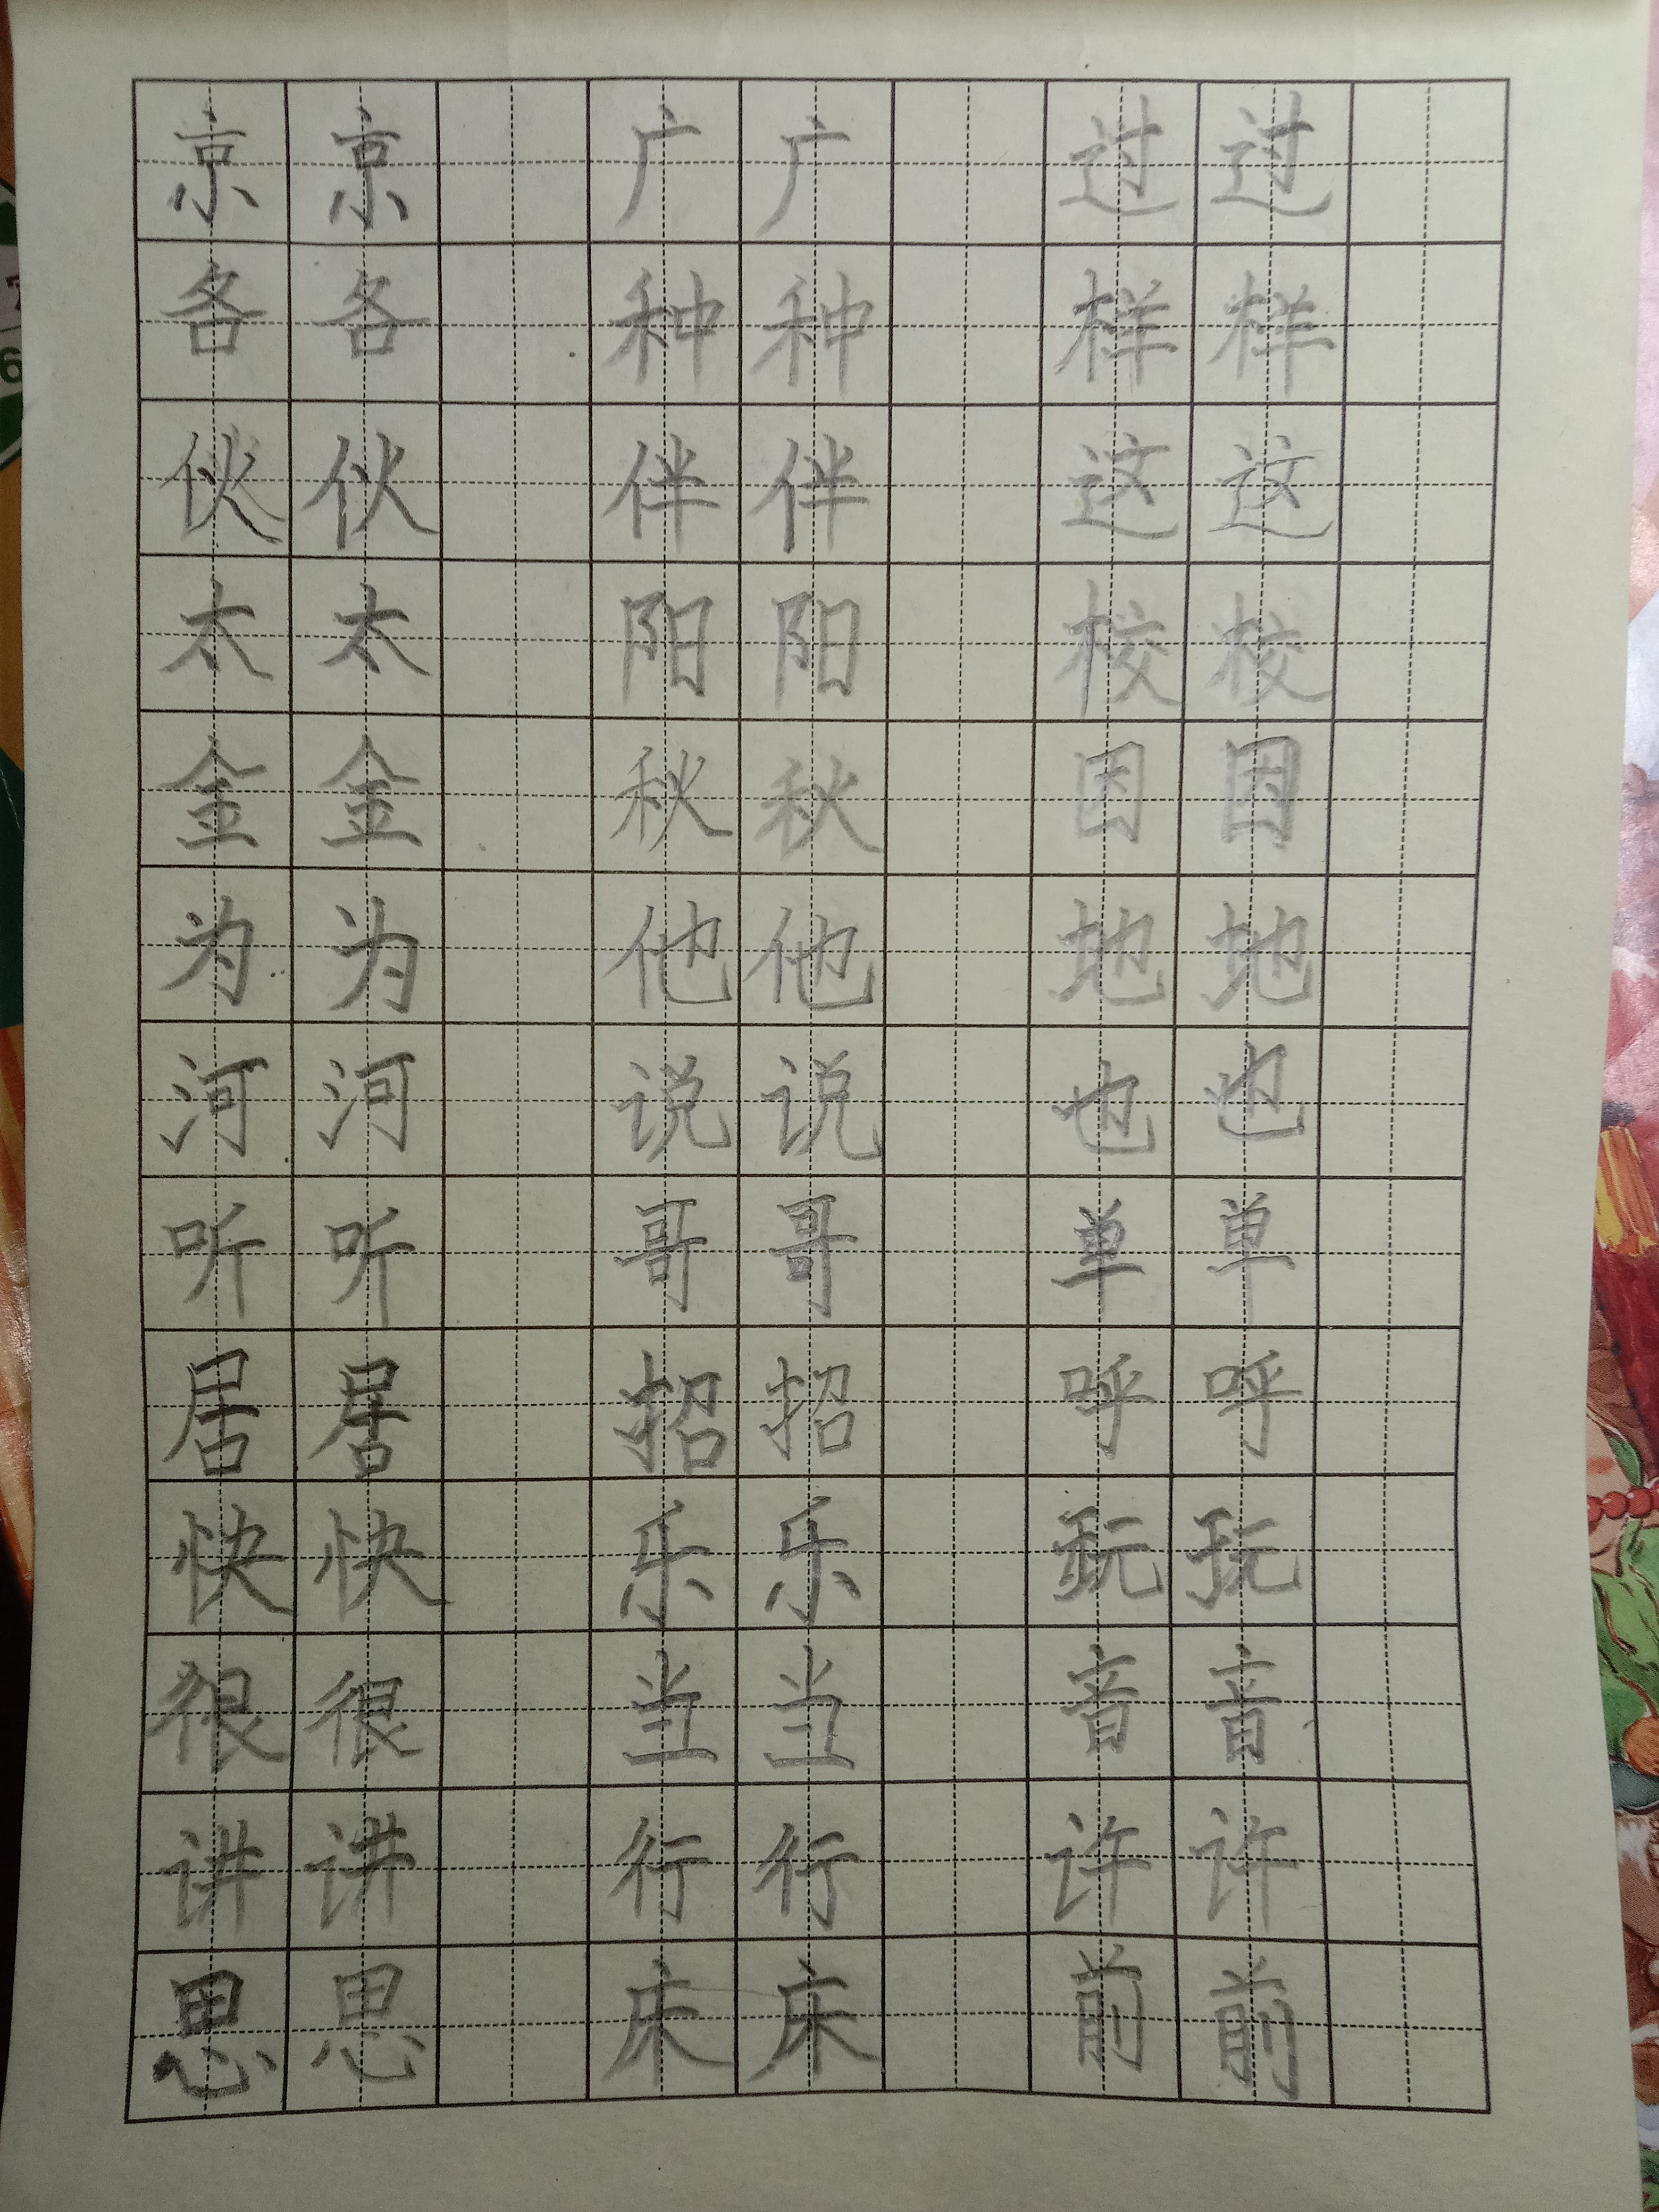 京 京 广 广 过 过
各 各 种 种 样 样
伙 伙 伴 伴 这 这
太 太 阳 阳 校 校
金 金 秋 秋 因 因
为 为 他 他 地 地
河 河 说 说 也 也
听 听 哥 哥 单 单
居 居 招 招 呼 呼
快 快 乐 乐 玩 玩
很 很 当 当 音 音
讲 讲 行 行 许 许
思 思 床 床 前 前